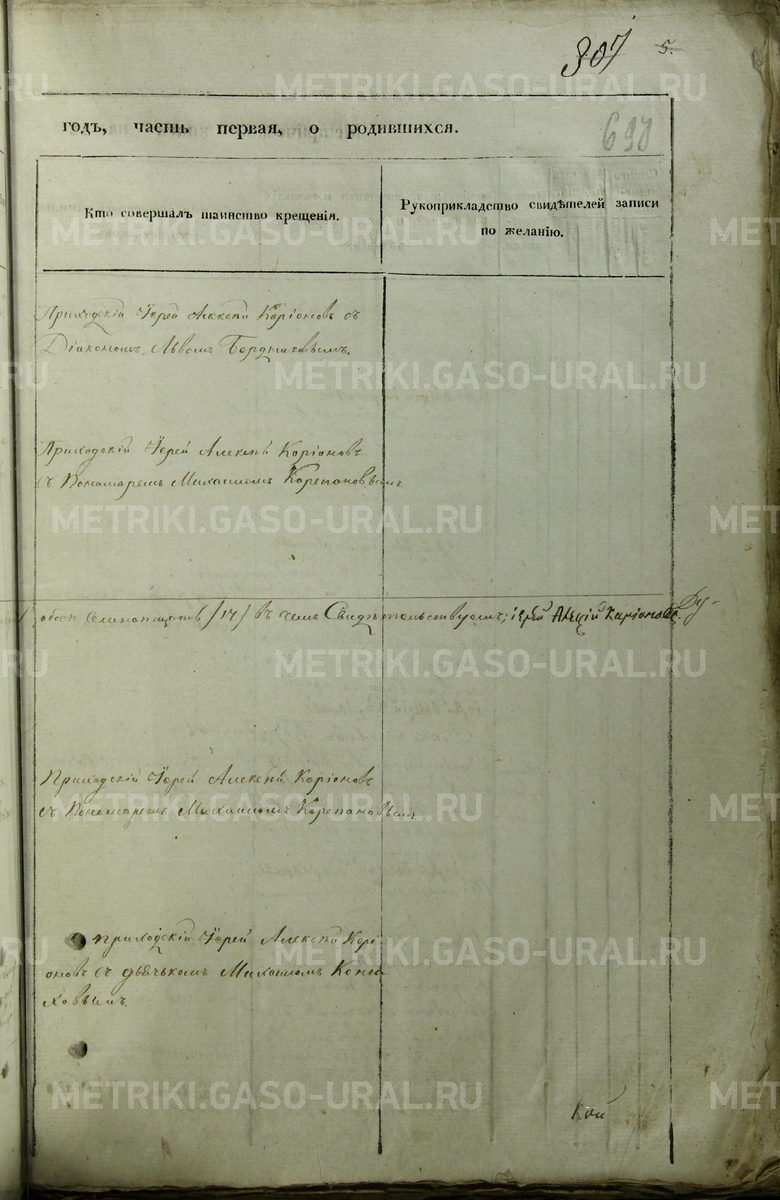 307 5.
698
годъ, часть первая, о родившихся.
Кто совершалъ таинство крещенія.
Рукоприкладство свидѣтелей записи
по желанію.
Приходскій Іерей Алексѣй Коріоновъ съ
Діакономъ Львомъ
Приходскій Іерей Алексѣй Коріоновъ
съ Пономаремъ Михаиломъ Корепановымъ
обоего семнатцать /17/ въ чемъ Свидѣтельствуемъ; іерей Алексій Каріоновъ. Ду-
Приходскій Іерей Алексѣй Коріоновъ
съ Пономаремъ Михаиломъ Корепановымъ
приходскій Іерей Алексѣй Корі
оновъ съ дьячькомъ Михаиломъ Коню
ховымъ
кой
METRIKI.GASO-URAL.RU